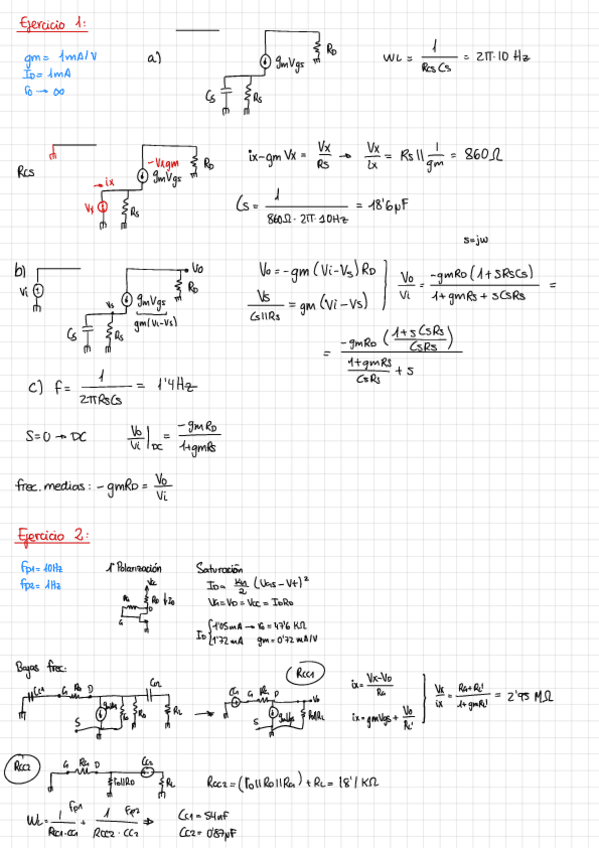 Ejercicio 1:
gm = 1mA/V
ID = 1mA
ro → ∞
a)
gmVgs
RD
Cs
Rs
WL = 1 / RCS CS = 2π·10 Hz
RCS
-Vxgm
gmVgs
RD
→ ix
Vx
Rs
ix - gm Vx = Vx / Rs → Vx / ix = Rs || 1 / gm = 860Ω
Cs = 1 / 860Ω · 2π·10Hz = 18'6µF
s=jw
b)
Vi
Vo
RD
Vs
gmVgs
gm(Vi-Vs)
Cs
Rs
Vo = -gm (Vi-Vs) RD
Vs / Cs||Rs = gm (Vi-Vs)
Vo / Vi = -gmRD (1+SRsCs) / 1+gmRs + sCsRs =
= -gmRD (1+sCsRs / CsRs) / 1+gmRs / CsRs + s
c) f = 1 / 2πRsCs = 1'4Hz
S=0 → DC
Vo / Vi |DC = -gmRD / 1+gmRs
frec. medias: -gmRD = Vo / Vi
Ejercicio 2:
fp1 = 10Hz
fp2 = 1Hz
1º Polarización
Saturación
ID = Kn / 2 (VGS - Vt)²
VG = VD = VCC - IDRD
ID { 1'05mA → ro = 47'6 KΩ
1'72mA gm = 0'72 mA/V
Bajas frec:
CC1
G
RG
D
CC2
gmVgs
ro
RD
RL
S
RCC1
G
RG
D
Vo
S
gmVgs
ix = Vx-Vo / RG
ix = gmVgs + Vo / RL'
Vx / ix = RG+RL' / 1+gmRL' = 2'95 MΩ
RCC2
G
RG
D
ro||RD
RL
RCC2 = (ro||RD||RG) + RL = 18'1 KΩ
WL = 1 / RCC1·CC1 + 1 / RCC2·CC2 ⇒
fp1
fp2
CC1 = 54nF
CC2 = 0'87µF